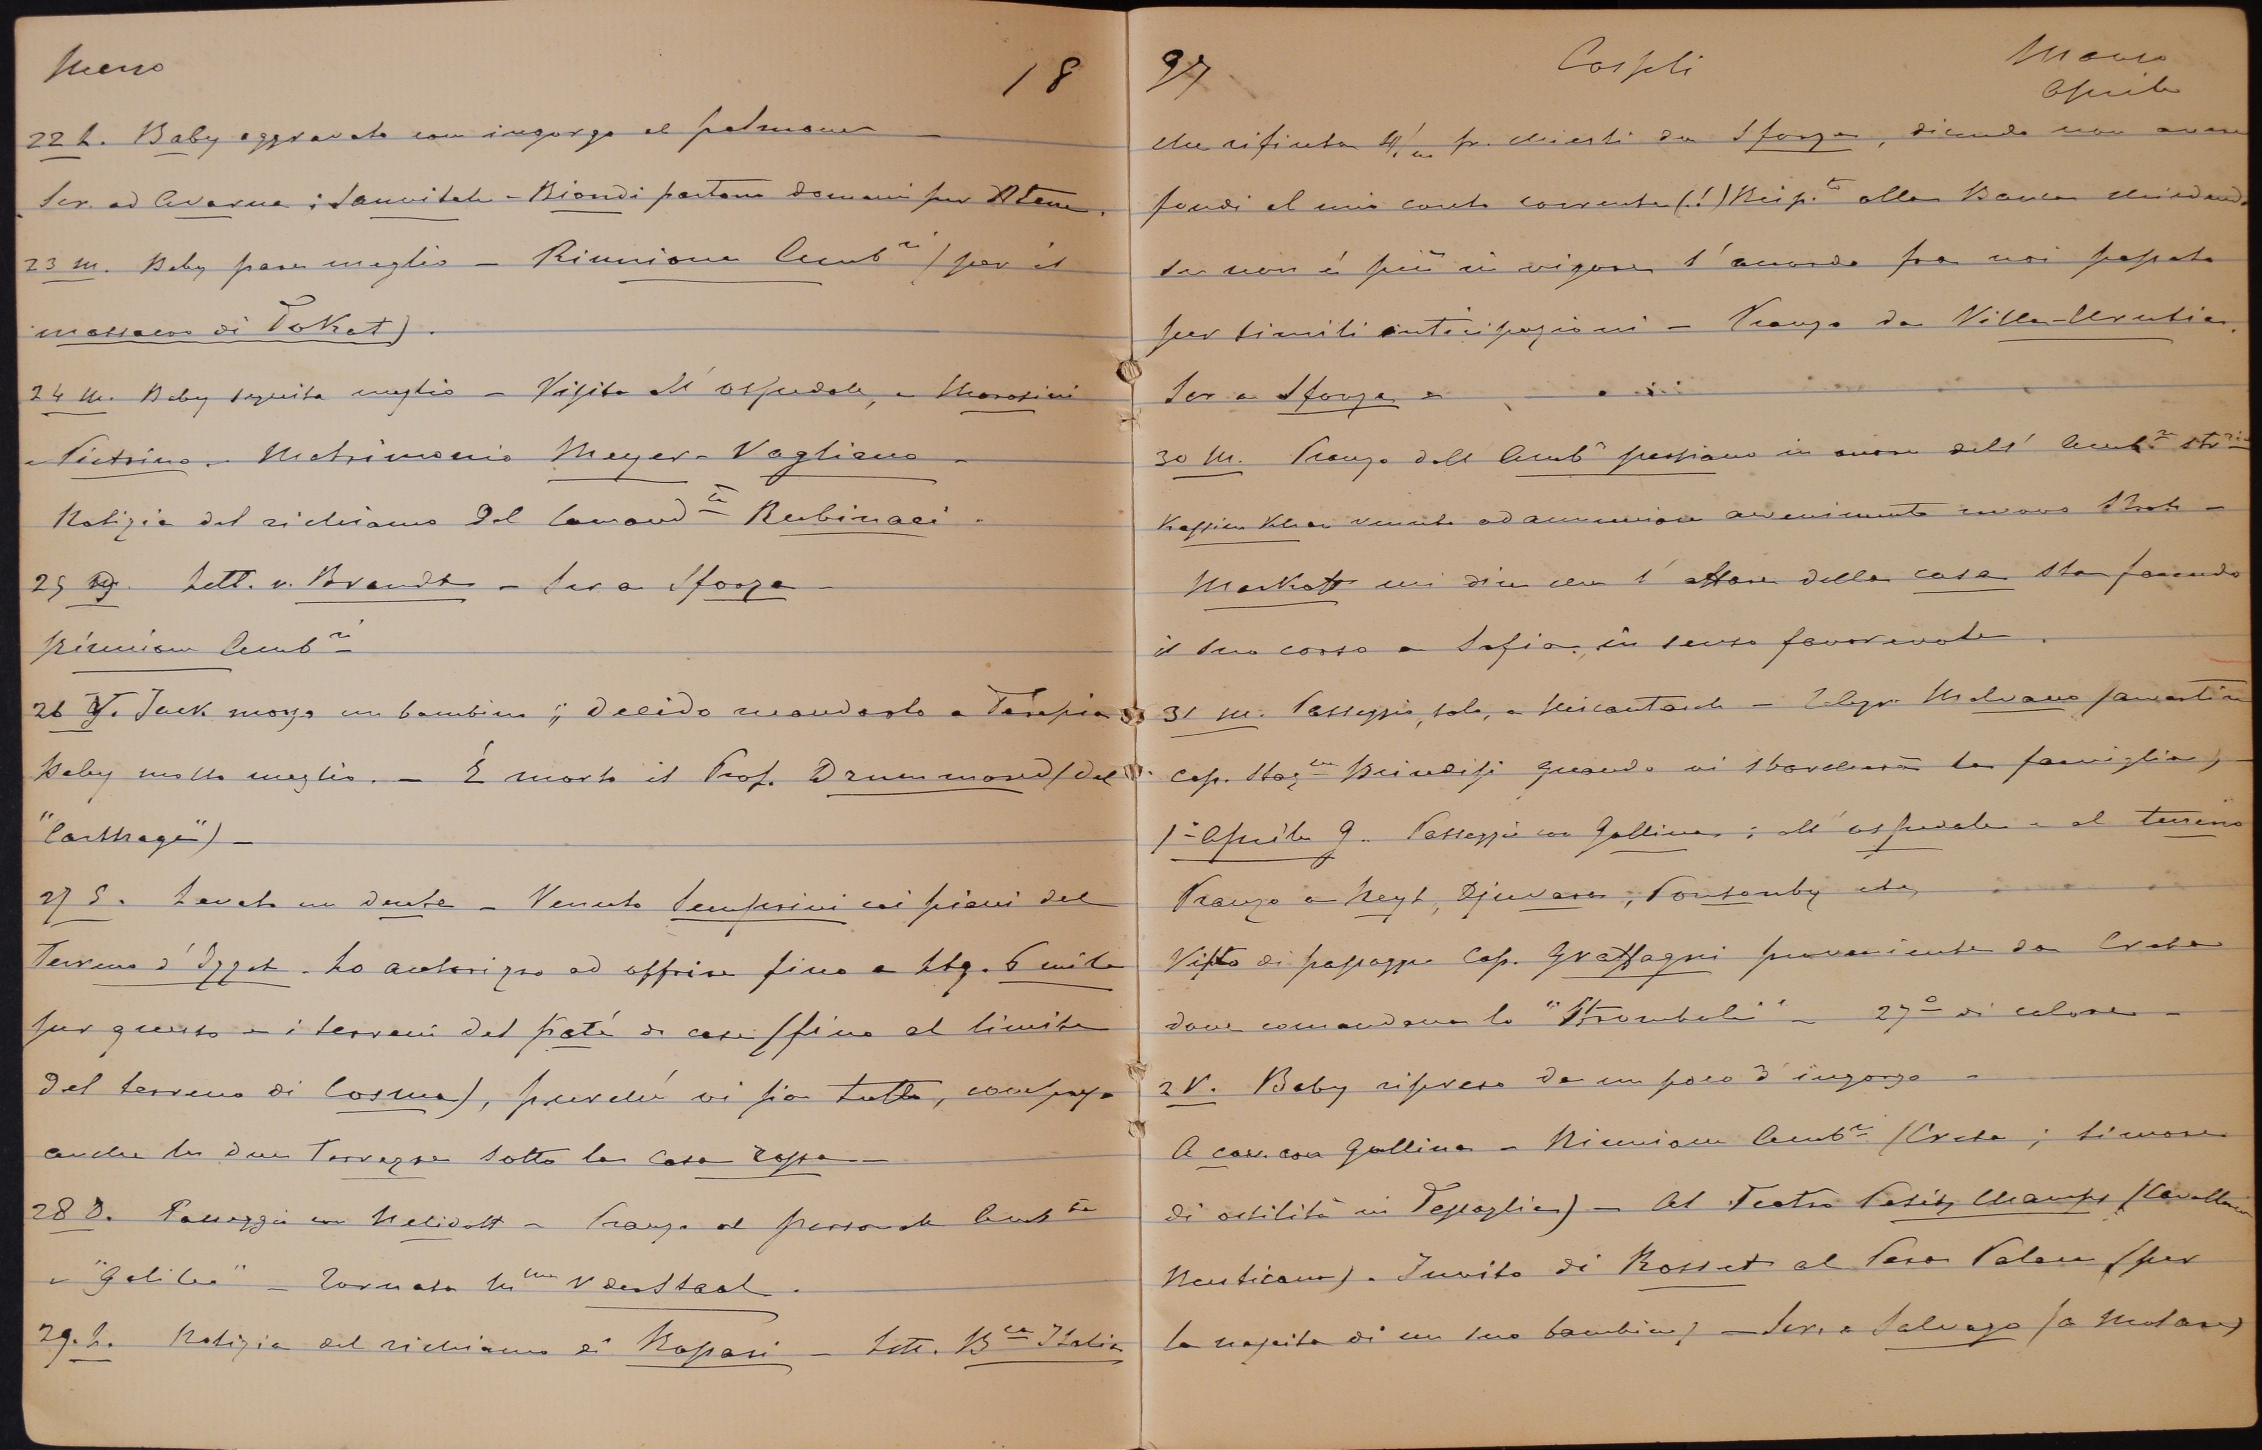 Marzo 18
22 L. Baby aggravato con ingorgo al polmone –
Scr. ad Avarna; Sanvitale - Biondi partono domani per Atene.
23 M. Baby pare meglio – Riunione Amb.ri (per il
massacro di Tokat).
24 M. Baby seguita meglio – Visita all'ospedale, a Morosini
e Pietrino. – Matrimonio Meyer - Vagliano –
Notizia del richiamo del Comand.te Rubinacci.
25 G. Lett. v. Brandt – Scr. a Sforza –
Riunione Amb.ri
26 V. Jack morse un bambino; decido mandarlo a Terapia
Baby molto meglio. – È morto il Prof. Drummond (del
"Carthage") –
27 S. Levato un dente – Venuto Semprini coi piani del
Terreno d'Izzet. Lo autorizzo ad offrire fino a Ltq. 6 mila
per questo e i terreni del paté di case (fino al limite
del terreno di Cosma), purché vi sia tutto, compreso
anche le due Terrazze sotto la Casa rossa –
28 D. Passeggio con Nelidoff – Pranzo al personale Amb.ta
e "Galileo" – Tornata M.me v den Staal.
29. L. Notizia del richiamo di Kospari – Lett. B.ca Italia
97 Cospli Marzo
Aprile
che rifiuta 4/m fr. chiesti da Sforza, dicendo non avere
fondi al mio conto corrente (!) Risp.to alla Banca chiedendo
se non è più in vigore l'accordo fra noi passato
per simili anticipazioni – Pranzo da Villa-Urrutia.
Scr. a Sforza
30 M. Pranzo dall'Amb.e persiano in onore dell'Amb.re str.rio
Kassim Khan venuto ad annunciare avvenimento nuovo Shah –
Markoff mi dice che l'affare della casa sta facendo
il suo corso a Sofia, in senso favorevole.
31 M. Passeggio, solo, a – Telegr. Malvano (avvertire
cap. Staz.ne Brindisi quando vi sbarcherà la famiglia) –
1° Aprile G. Passeggio con Gallina; all'ospedale e al terreno
Pranzo a Neyt, Djuvara, Ponsonby etc.
Visto di passaggio Cap. Graffagni proveniente da Creta
dove comandava lo "Stromboli" – 27° di calore –
2 V. Baby ripreso da un poco d'ingorgo –
A cav. con Gallina – Riunione Amb.ri (Creta; timore
di ostilità in Tessaglia) – Al Teatro Petits Champs (Cavalleria
Rusticana). Invito di Rosset al Pera Palace (per
la nascita di un suo bambino) – Scr. a Salvago (a Matare)